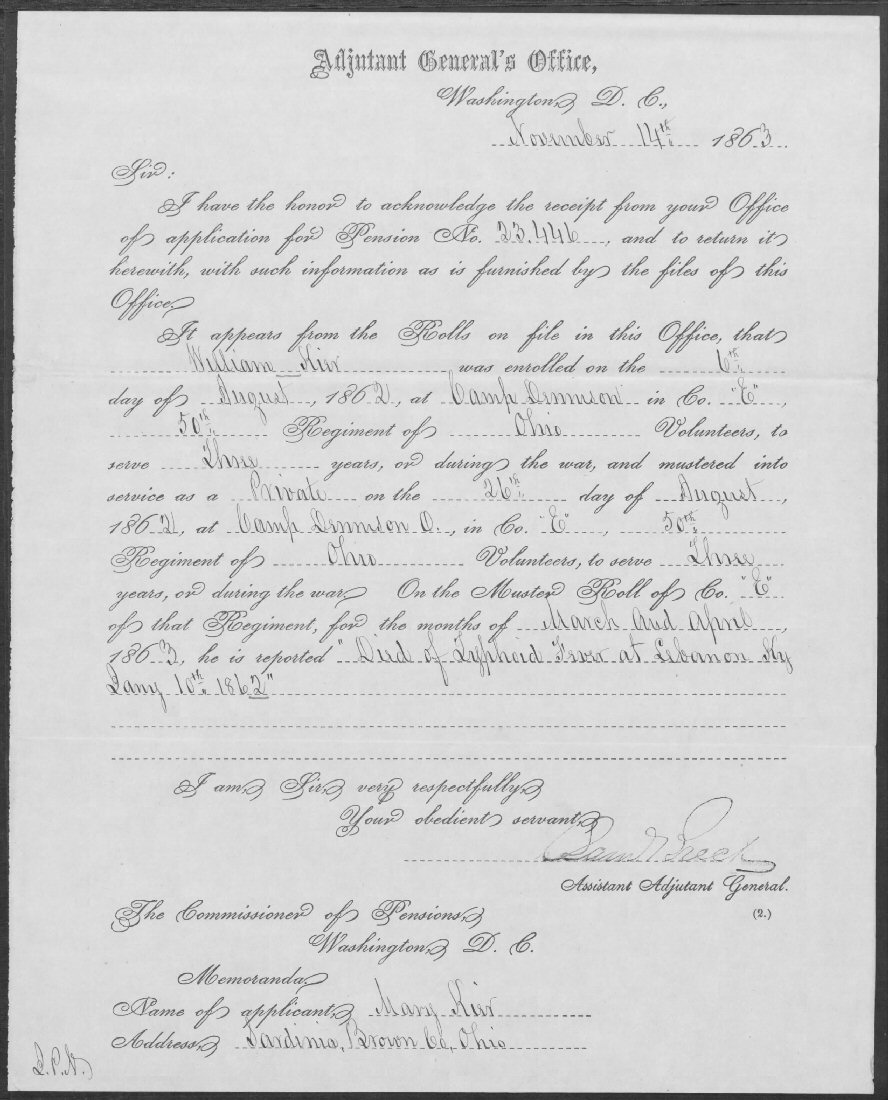 Adjutant General's Office,
Washington, D. C.,
November 14th 1863.
Sir:
I have the honor to acknowledge the receipt from your Office
of application for Pension No. 23.446, and to return it
herewith, with such information as is furnished by the files of this
Office.
It appears from the Rolls on file in this Office, that
William Kier was enrolled on the 6th
day of August, 1862, at Camp Dennison in Co. "E",
50th Regiment of Ohio Volunteers, to
serve Three years, or during the war, and mustered into
service as a Private on the 26th day of August,
1862, at Camp Dennison O., in Co. "E", 50th
Regiment of Ohio Volunteers, to serve Three
years, or during the war. On the Muster Roll of Co. "E"
of that Regiment, for the months of March and April,
1863, he is reported "Died of Typhoid Fever at Lebanon Ky
Jany 10th 1862"
I am, Sir, very respectfully,
Your obedient servant,
Saml Breck
Assistant Adjutant General.
The Commissioner of Pensions,
(2.)
Washington, D. C.
Memoranda.
Name of applicant, Mary Kier
Address, Sardinia, Brown Co, Ohio